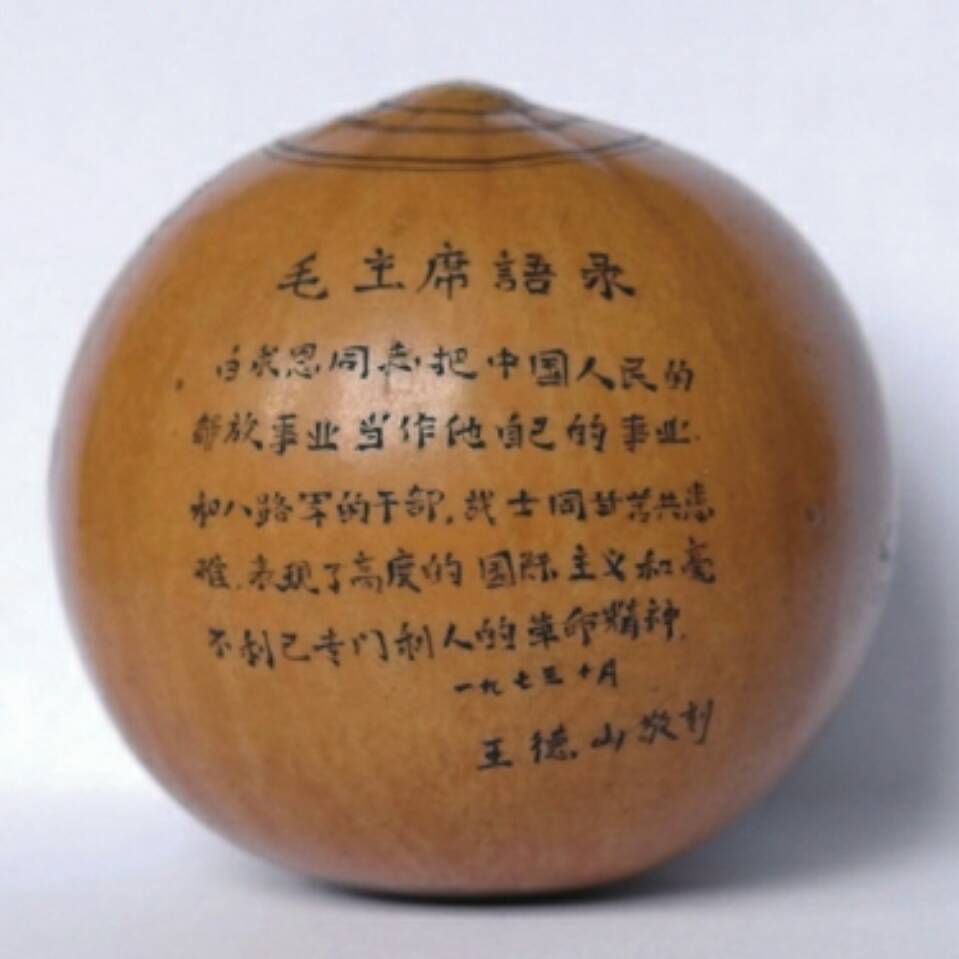 毛主席語录
白求恩同志把中国人民的
解放事业当作他自己的事业.
和八路军的干部,战士同甘苦共患
难.表现了高度的国际主义和毫
不利己专门利人的革命精神.
一九七三十月
王德山敬刻